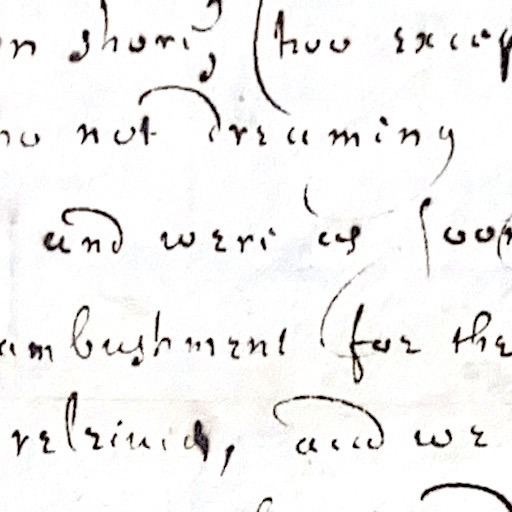 on shore; (two excep
who not dreaming
and were as soon
ambushment (for the
releived, and we